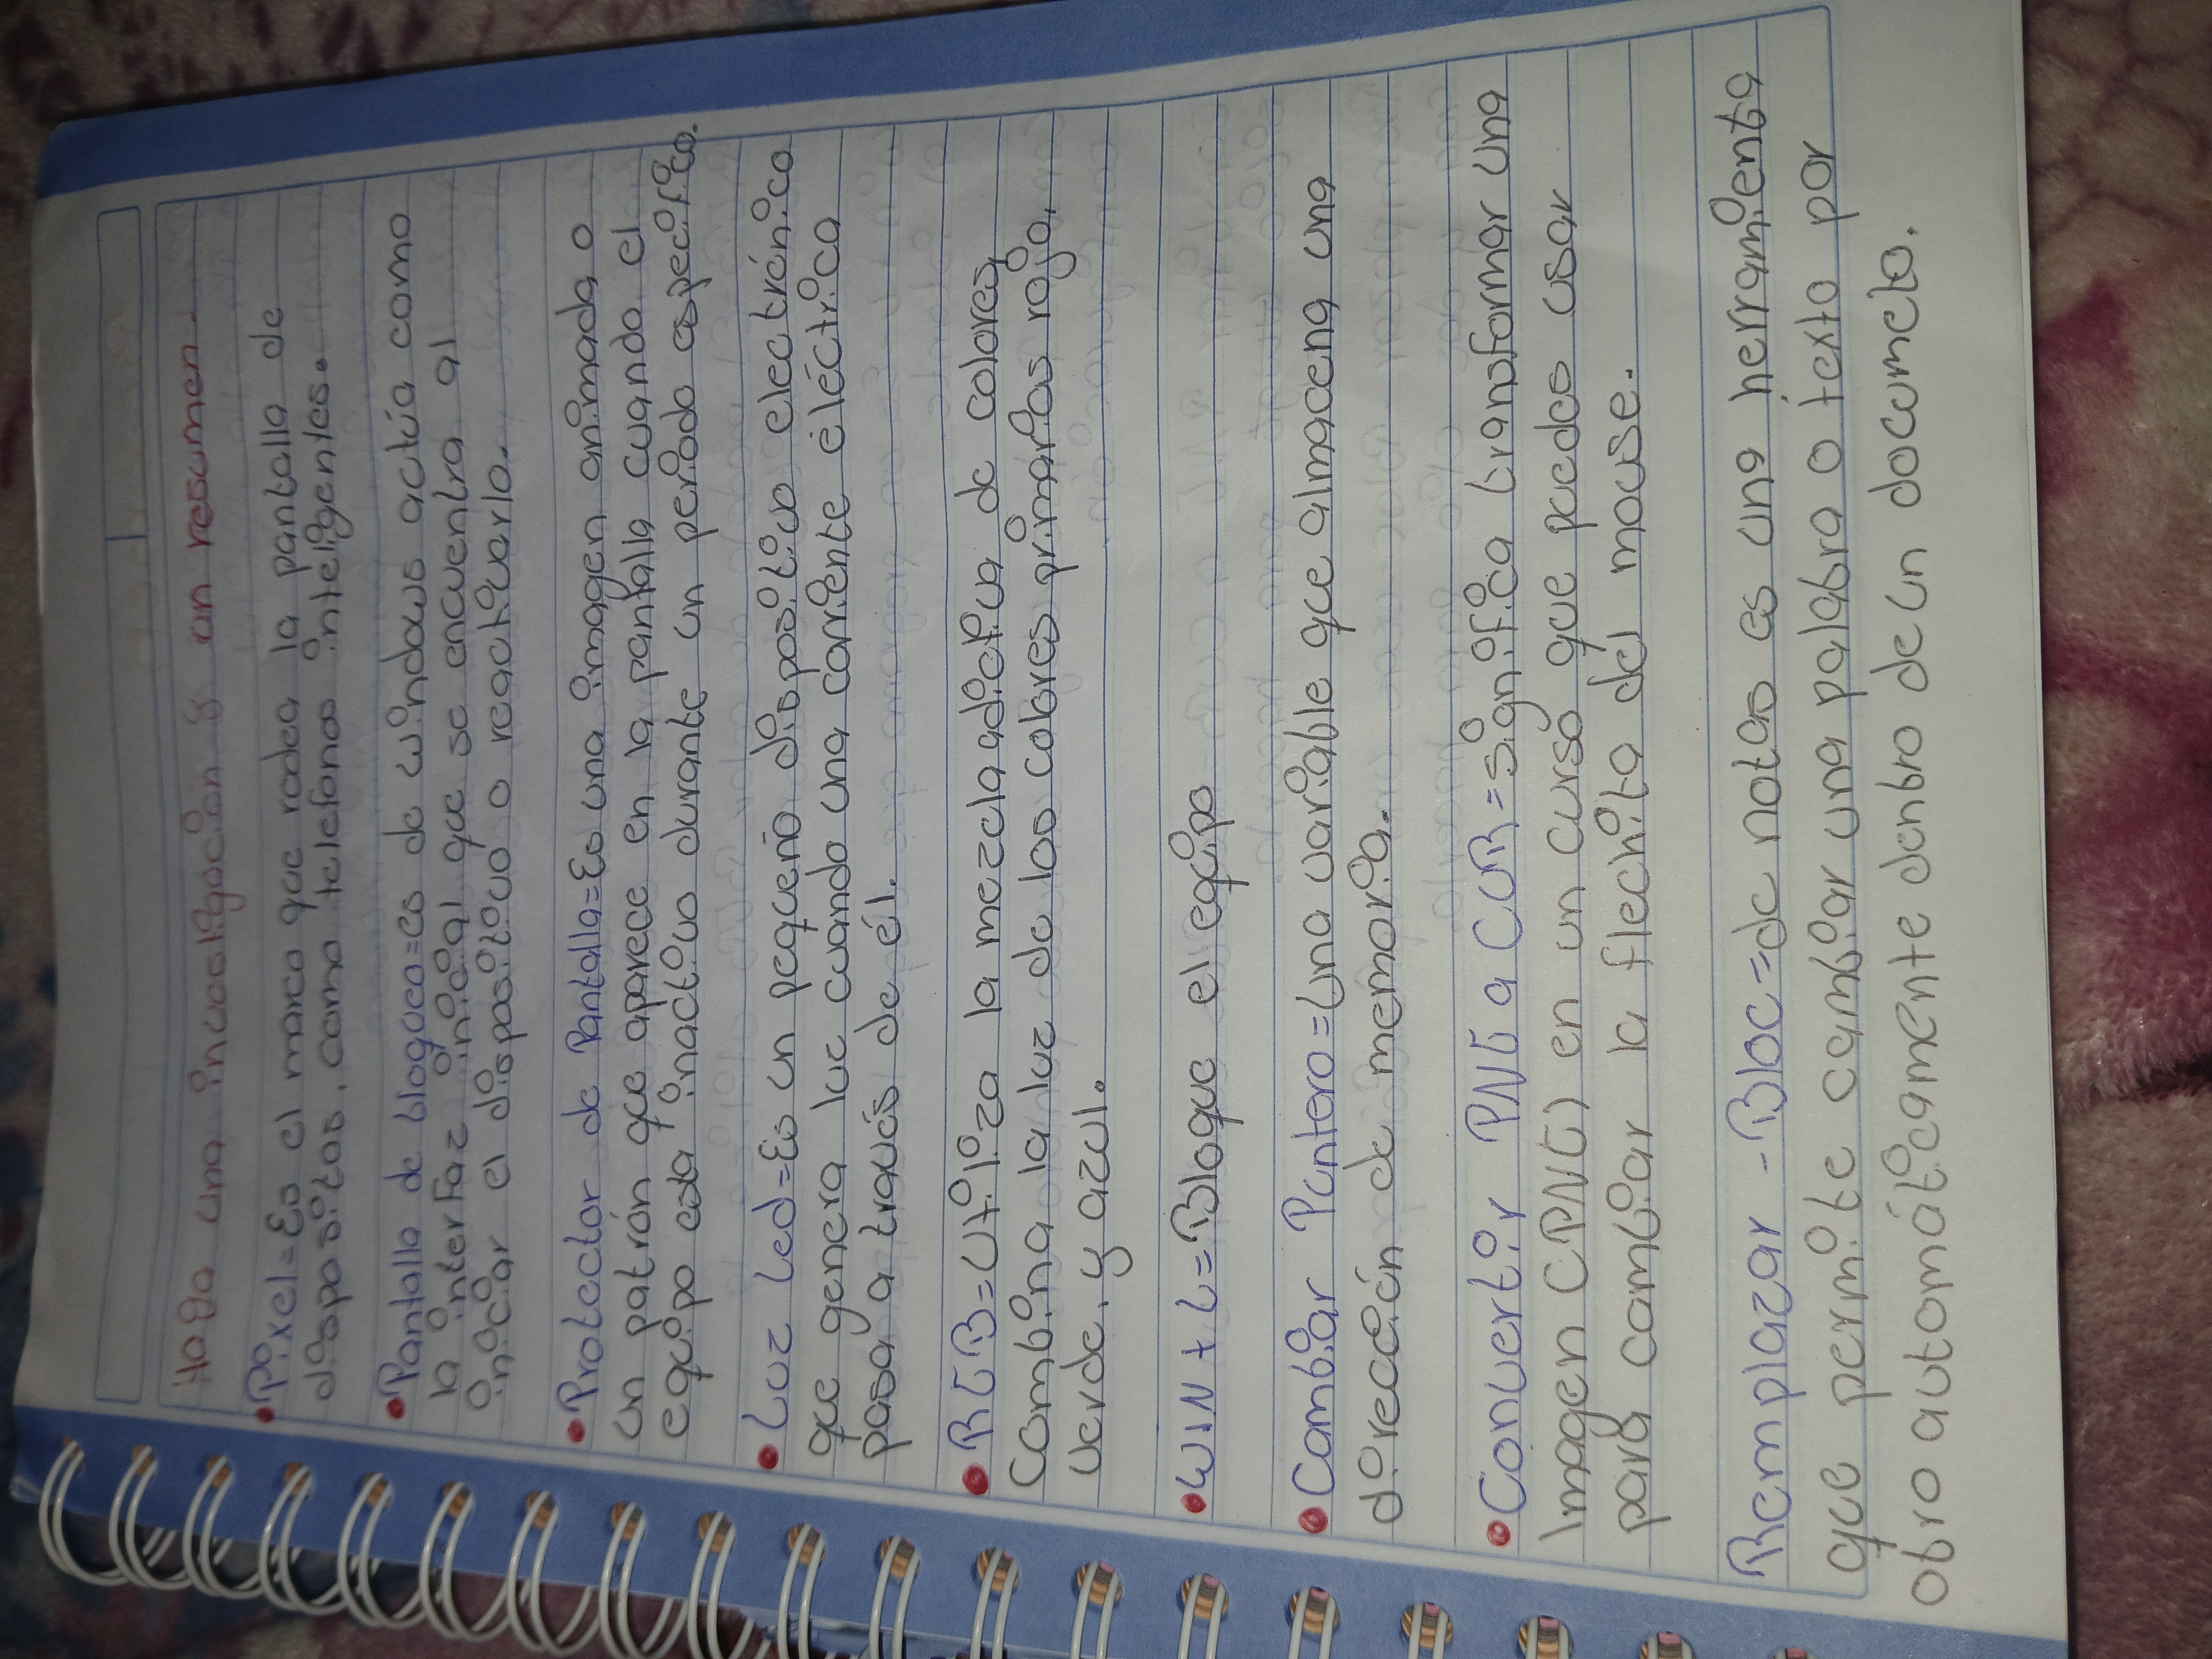 Haga una investigación y un resumen.
• Pixel=Es el marco que rodea la pantalla de
dispositos, como telefonos inteligentes.
• Pantalla de bloqueo=es de windows actúa como
la interfaz inicial que se encuentra al
iniciar el dispositivo o reactivarlo.
• Protector de Pantalla=Es una imagen animada o
un patrón que aparece en la pantalla cuando el
equipo esta inactivo durante un periodo especifico.
• Luz Led=Es un pequeño dispositivo electrónico
que genera luc cuando una corriente eléctrica
pasa a través de él.
• RGB=Utiliza la mezcla adictiva de colores,
Combina la luz de los colores primarios rojo,
verde, y azul.
• WIN + L=Bloque el equipo
• Cambiar Puntero=Una variable que almacena una
dirección de memoria.
• Convertir PNG a CUR=significa transformar una
Imagen (PNG) en un curso que puedes usar
para cambiar la flechita del mouse.
Remplazar - Bloc=de notas es una herramienta
que permite cambiar una palabra o texto por
otro automáticamente dentro de un documeto.